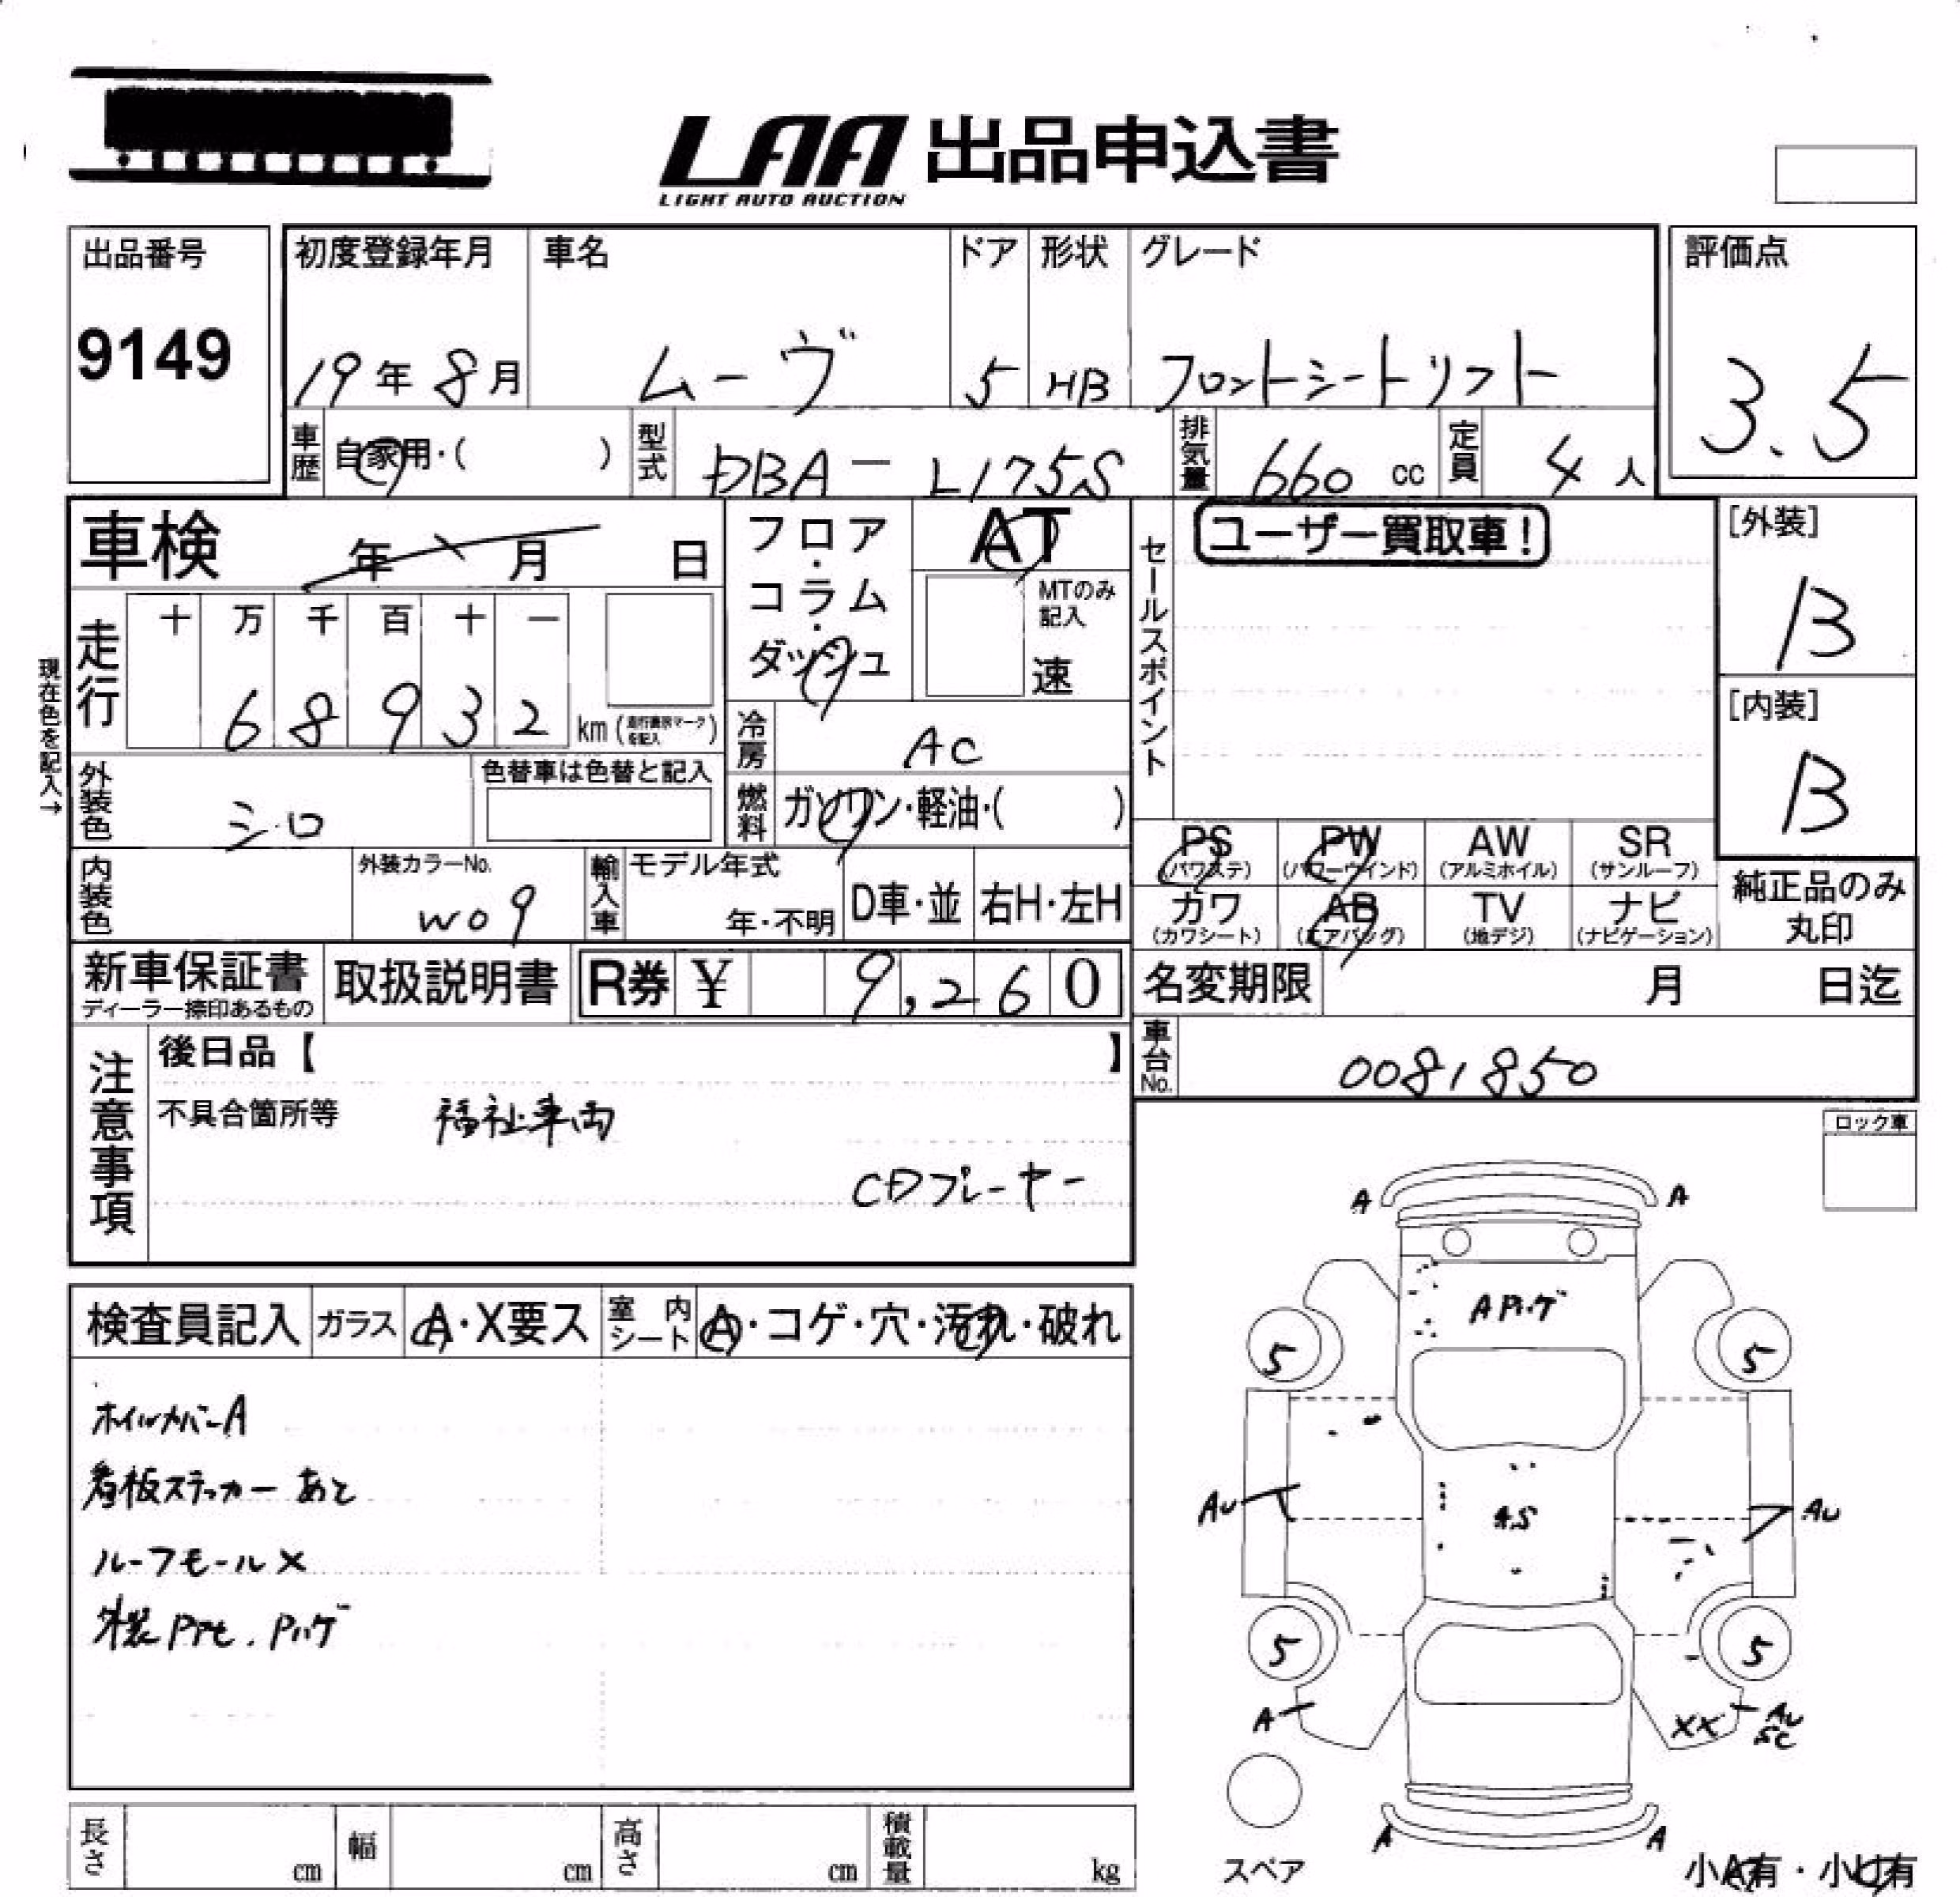 LAA 出品申込書
LIGHT AUTO AUCTION
出品番号
9149
初度登録年月
19年 8月
車名
ムーヴ
ドア
5
形状
HB
グレード
フロントシートリフト
評価点
3.5
車歴
自家用・( )
型式
DBA-L175S
排気量
660 cc
定員
4 人
車検
年 月 日
フロア・コラム・ダッシュ
AT
MTのみ記入
速
セールスポイント
ユーザー買取車!
[外装]
B
[内装]
B
現在色を記入→
走行
十 万 千 百 十 一
6 8 9 3 2
km(走行表示マークを記入)
冷房
AC
外装色
シロ
色替車は色替と記入
燃料
ガソリン・軽油・( )
PS
(パワステ)
PW
(パワーウインド)
AW
(アルミホイル)
SR
(サンルーフ)
カワ
(カワシート)
AB
(エアバッグ)
TV
(地デジ)
ナビ
(ナビゲーション)
純正品のみ
丸印
内装色
外装カラーNo.
W09
輸入車
モデル年式
年・不明
D車・並
右H・左H
新車保証書
ディーラー捺印あるもの
取扱説明書
R券 ¥ 9,260
名変期限
月 日迄
注意事項
後日品【 】
車台No.
0081850
不具合箇所等
福祉車両
CDプレーヤー
ロック車
検査員記入
ガラス
A・X要ス
室内シート
A・コゲ・穴・汚れ・破れ
ホイルカバーA
看板ステッカーあと
ルーフモール×
外装Pアセ.Pハゲ
A A
A Pハゲ
5 5
AU AU
A.S
5 5
A
XX
AU
SC
A A
スペア
小A有・小U有
長さ
cm
幅
cm
高さ
cm
積載量
kg